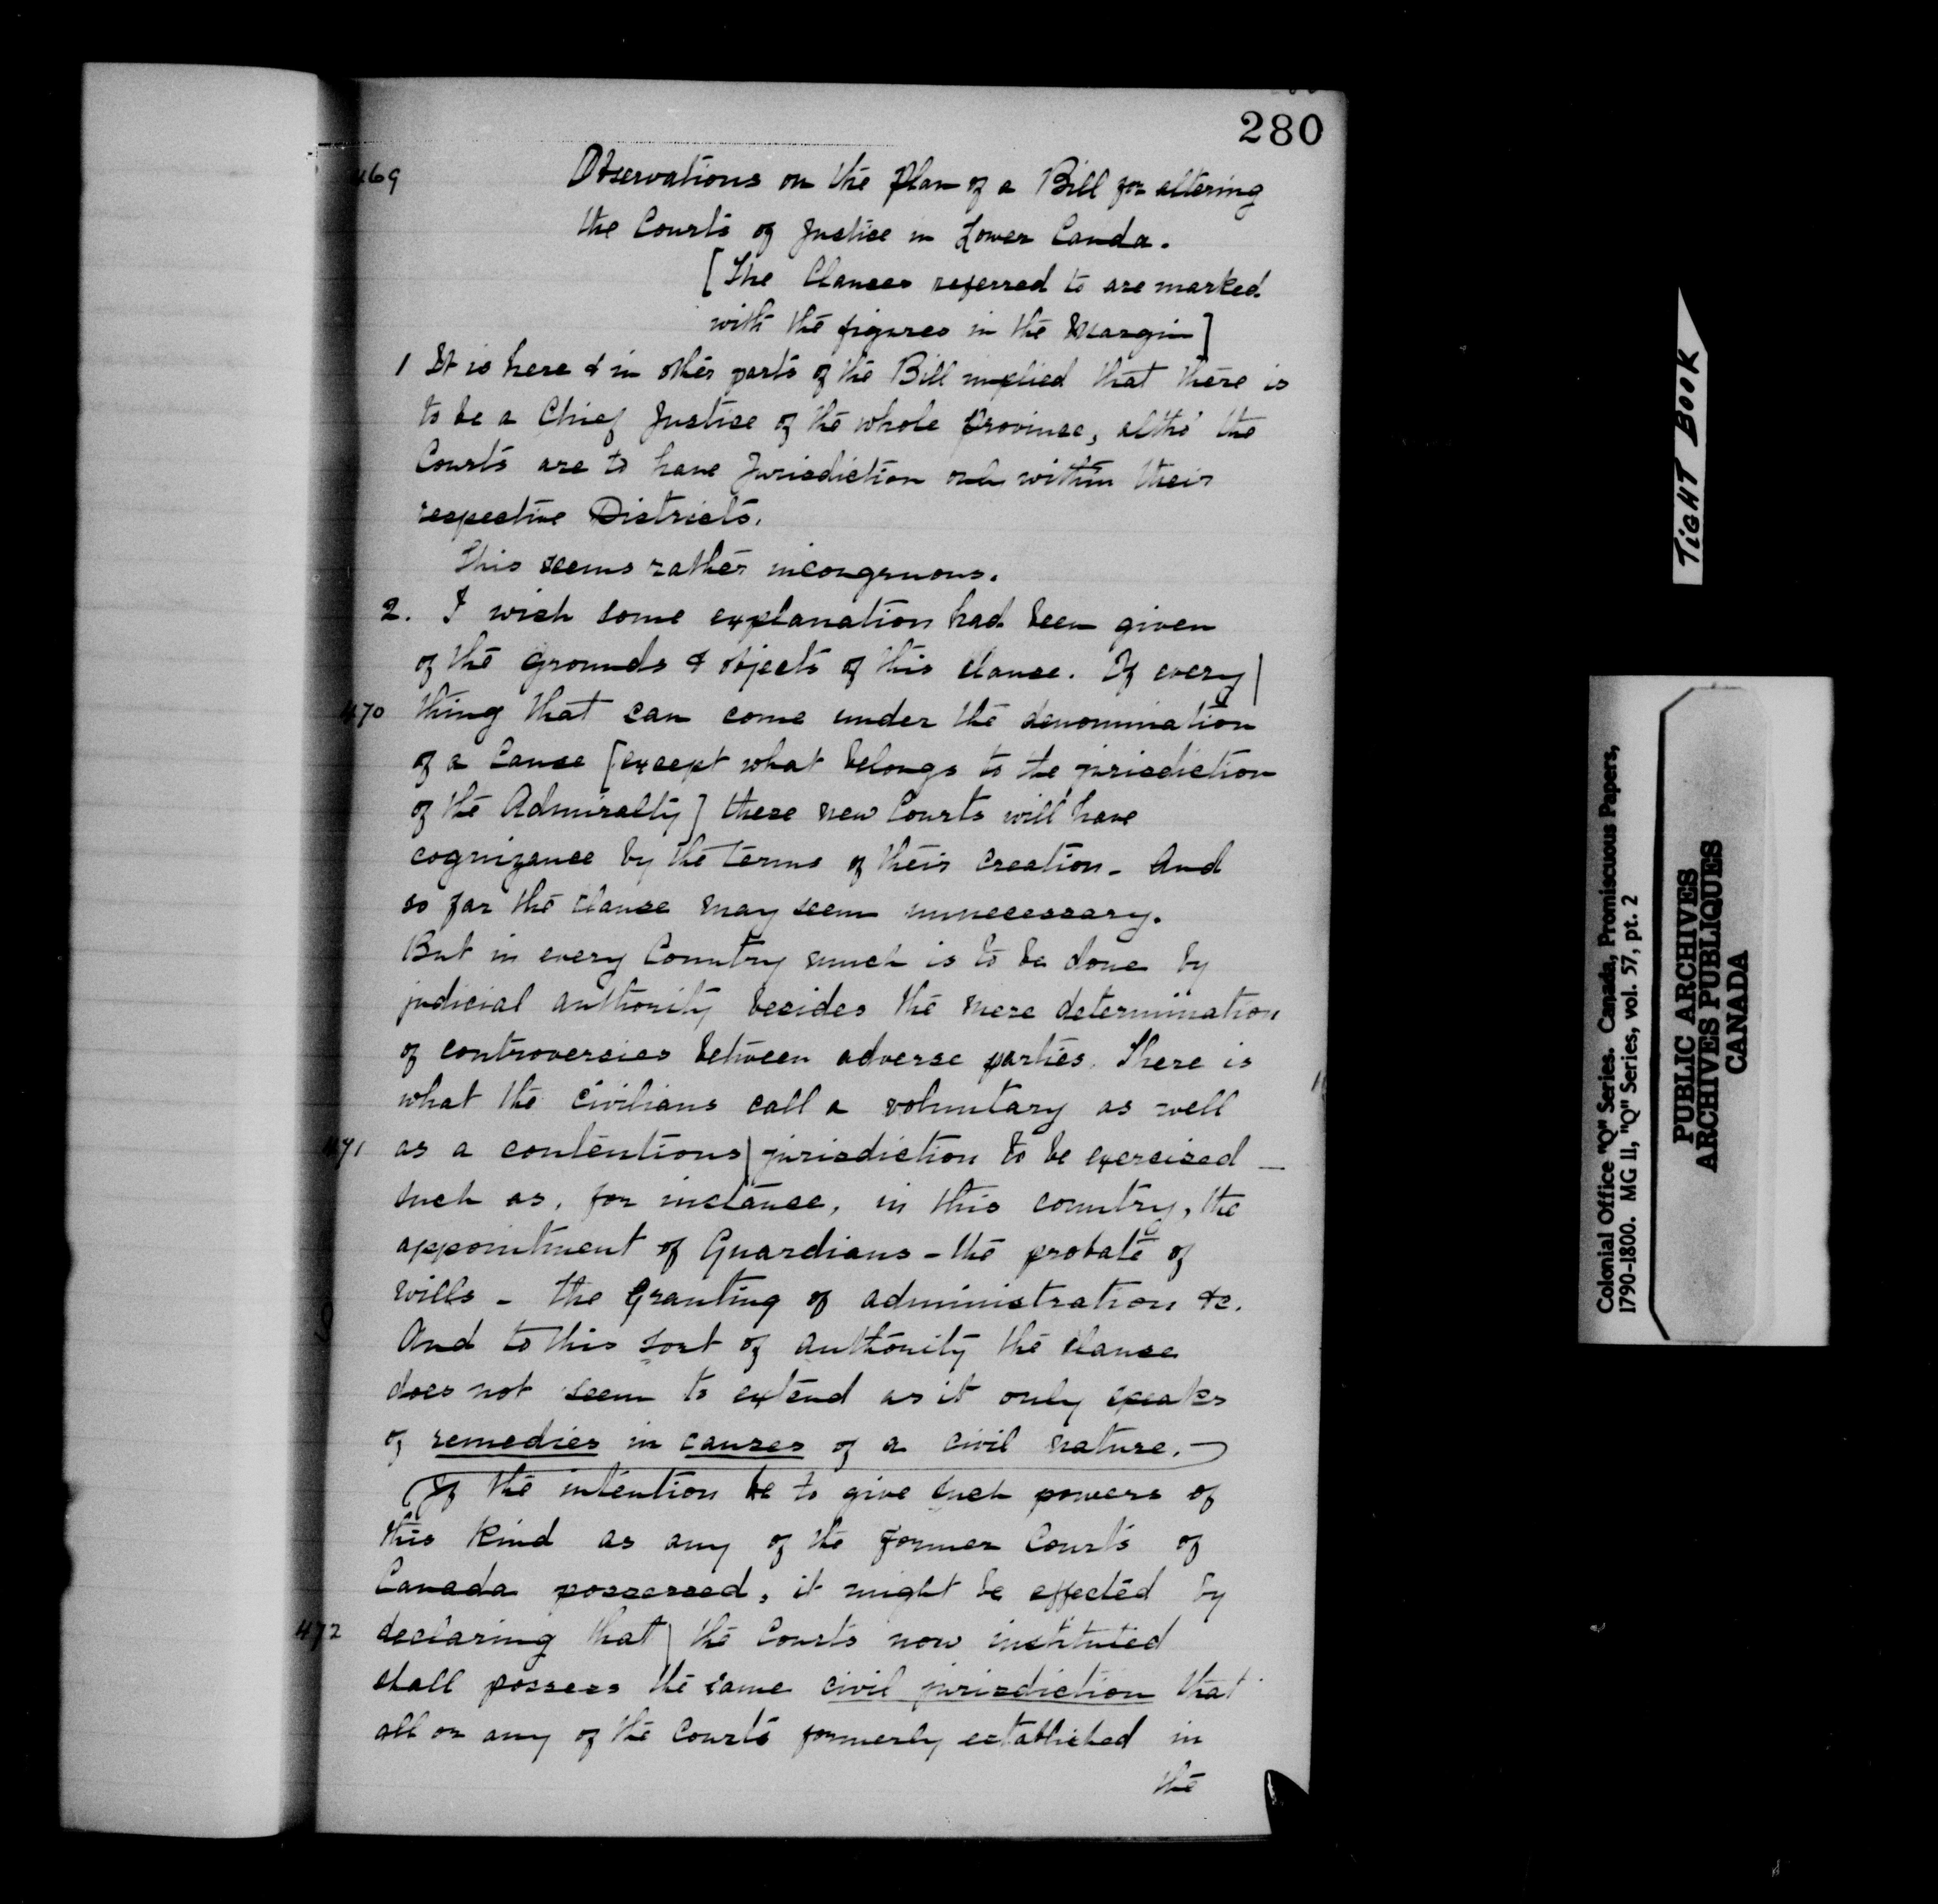 280
469
Observations on the plan of a Bill for altering
the Courts of Justice in Lower Canda.
[The Clauses referred to are marked
with the figures in the Margin]
1 It is here & in other parts of the Bill implied that there is
to be a Chief Justice of the whole province, altho' the
Courts are to have Jurisdiction only within their
respective Districts.
This seems rather incongruous.
2. I wish some explanation had been given
of the grounds & objects of this clause. Of every|
470 thing that can come under the denomination
of a Cause [except what belongs to the jurisdiction
of the Admiralty] these new Courts will have
cognizance by the terms of their creation. And
so far the clause may seem unnecessary.
But in every Country much is to be done by
judicial authority besides the mere determination
of controversies between adverse parties. There is
what the civilians call a voluntary as well
471 as a contentious| jurisdiction to be exercised –
such as, for instance, in this country, the
appointment of Guardians – the probate of
wills – the Granting of administration &c.
And to this sort of authority the clause
does not seem to extend as it only speaks
of remedies in causes of a civil nature.
If the intention be to give such powers of
this kind as any of the former Courts of
Canada possessed, it might be effected by
472 declaring that| the Courts now instituted
shall possess the same civil jurisdiction that
all or any of the Courts formerly established in
the
TIGHT BOOK
Colonial Office "Q" Series. Canada, Promiscuous Papers,
1790-1800. MG 11, "Q" Series, vol. 57, pt. 2
PUBLIC ARCHIVES
ARCHIVES PUBLIQUES
CANADA